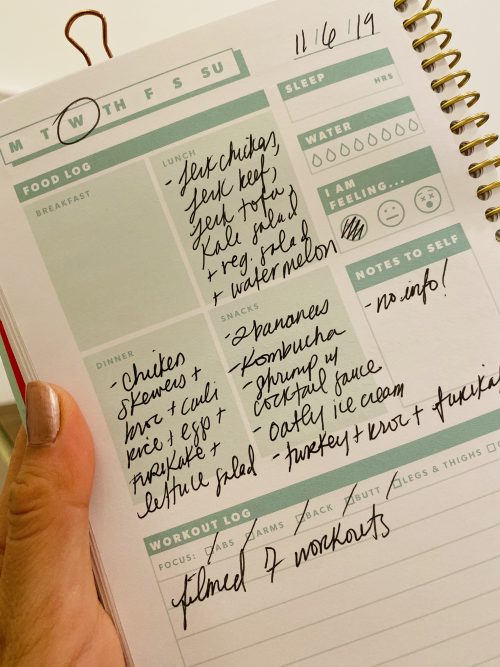 11/6/19
M T W TH F S SU
SLEEP
HRS
FOOD LOG
WATER
BREAKFAST
LUNCH
- Jerk chicken,
Jerk beef,
Jerk tofu,
kale salad
+ reg. salad
+ watermelon
I AM
FEELING...
NOTES TO SELF
- no info!
DINNER
- chicken
skewers +
broc + cauli
rice + eggs +
furikake +
lettuce salad
SNACKS
- 2 bananas
- Kombucha
- shrimp w/
cocktail sauce
- oatly ice cream
- turkey + broc + furikake
WORKOUT LOG
FOCUS: ABS ARMS BACK BUTT LEGS & THIGHS
filmed 7 workouts